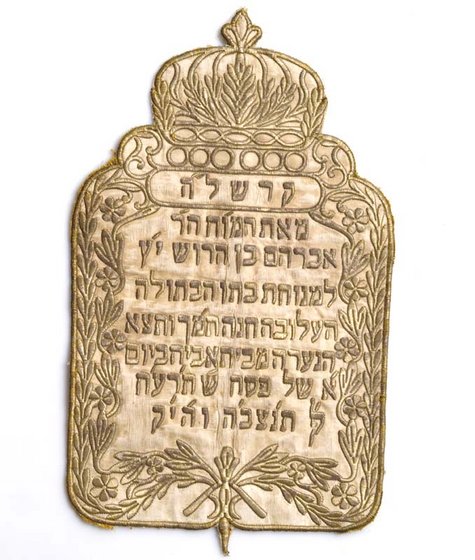 ק״ ק״ ש״ ל״ ה״
מאת המוח הר
אברהם בן הרוש י״ץ
למנוחת בתו הבתולה
העלובה חנה תמך ותצא
הנערה מבית אביה ביום
א של פסח ש תרע״ח
ל תנצבה והיק